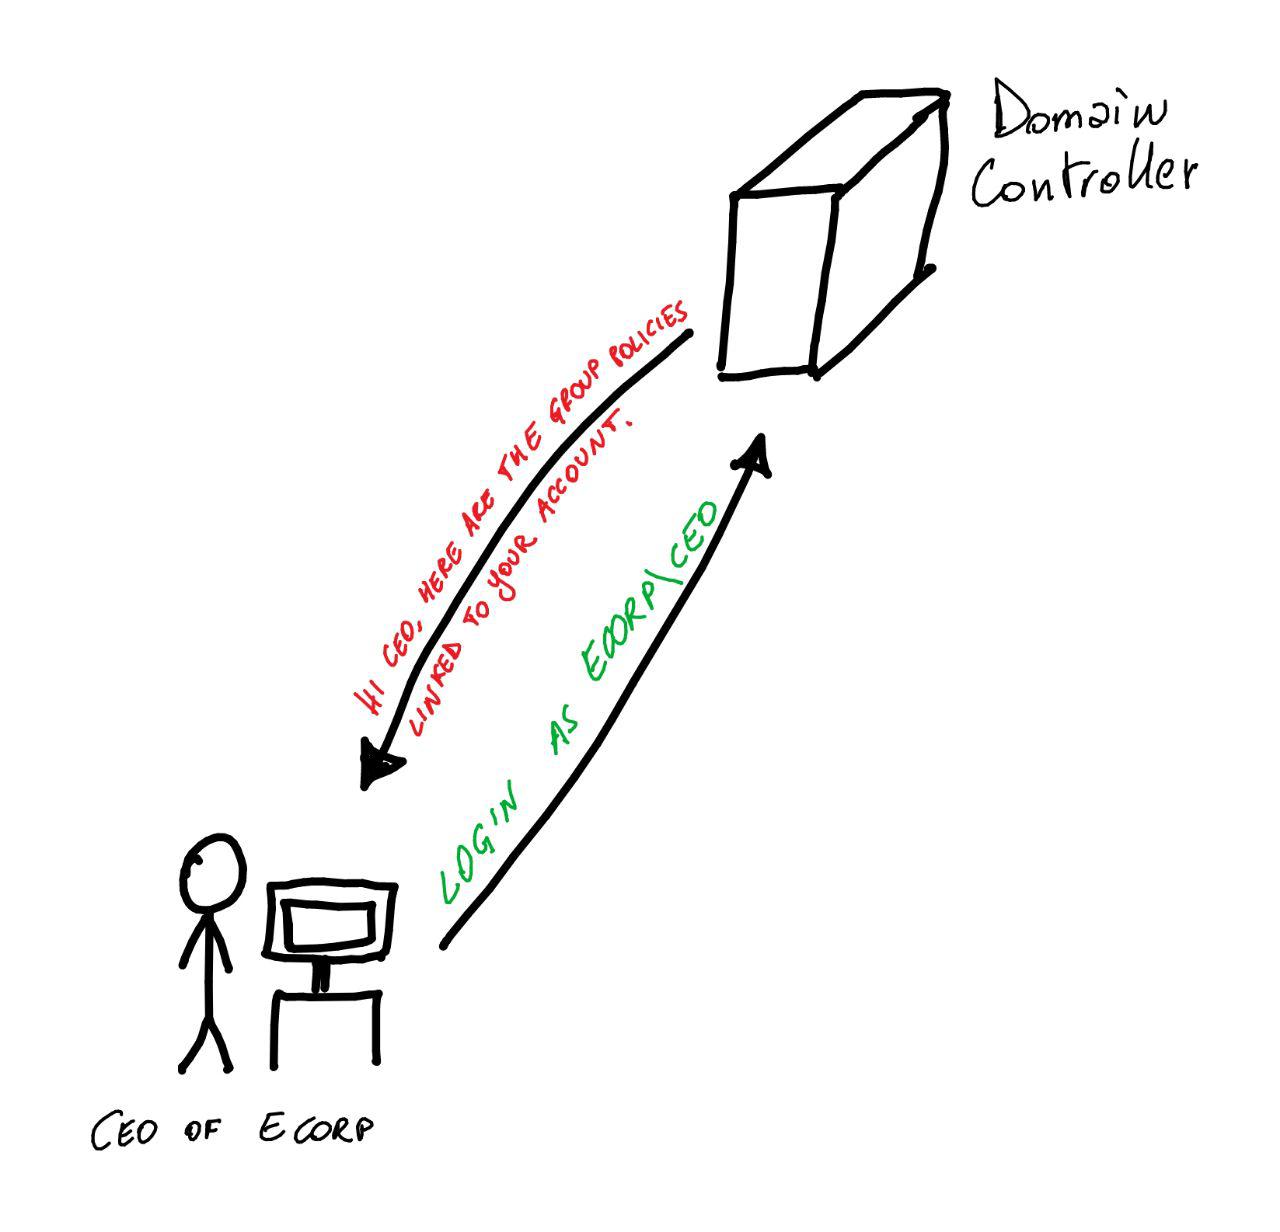 Domain
Controller
HI CEO, HERE ARE THE GROUP POLICIES
LINKED TO YOUR ACCOUNT.
LOGIN AS ECORP\CEO
CEO OF ECORP